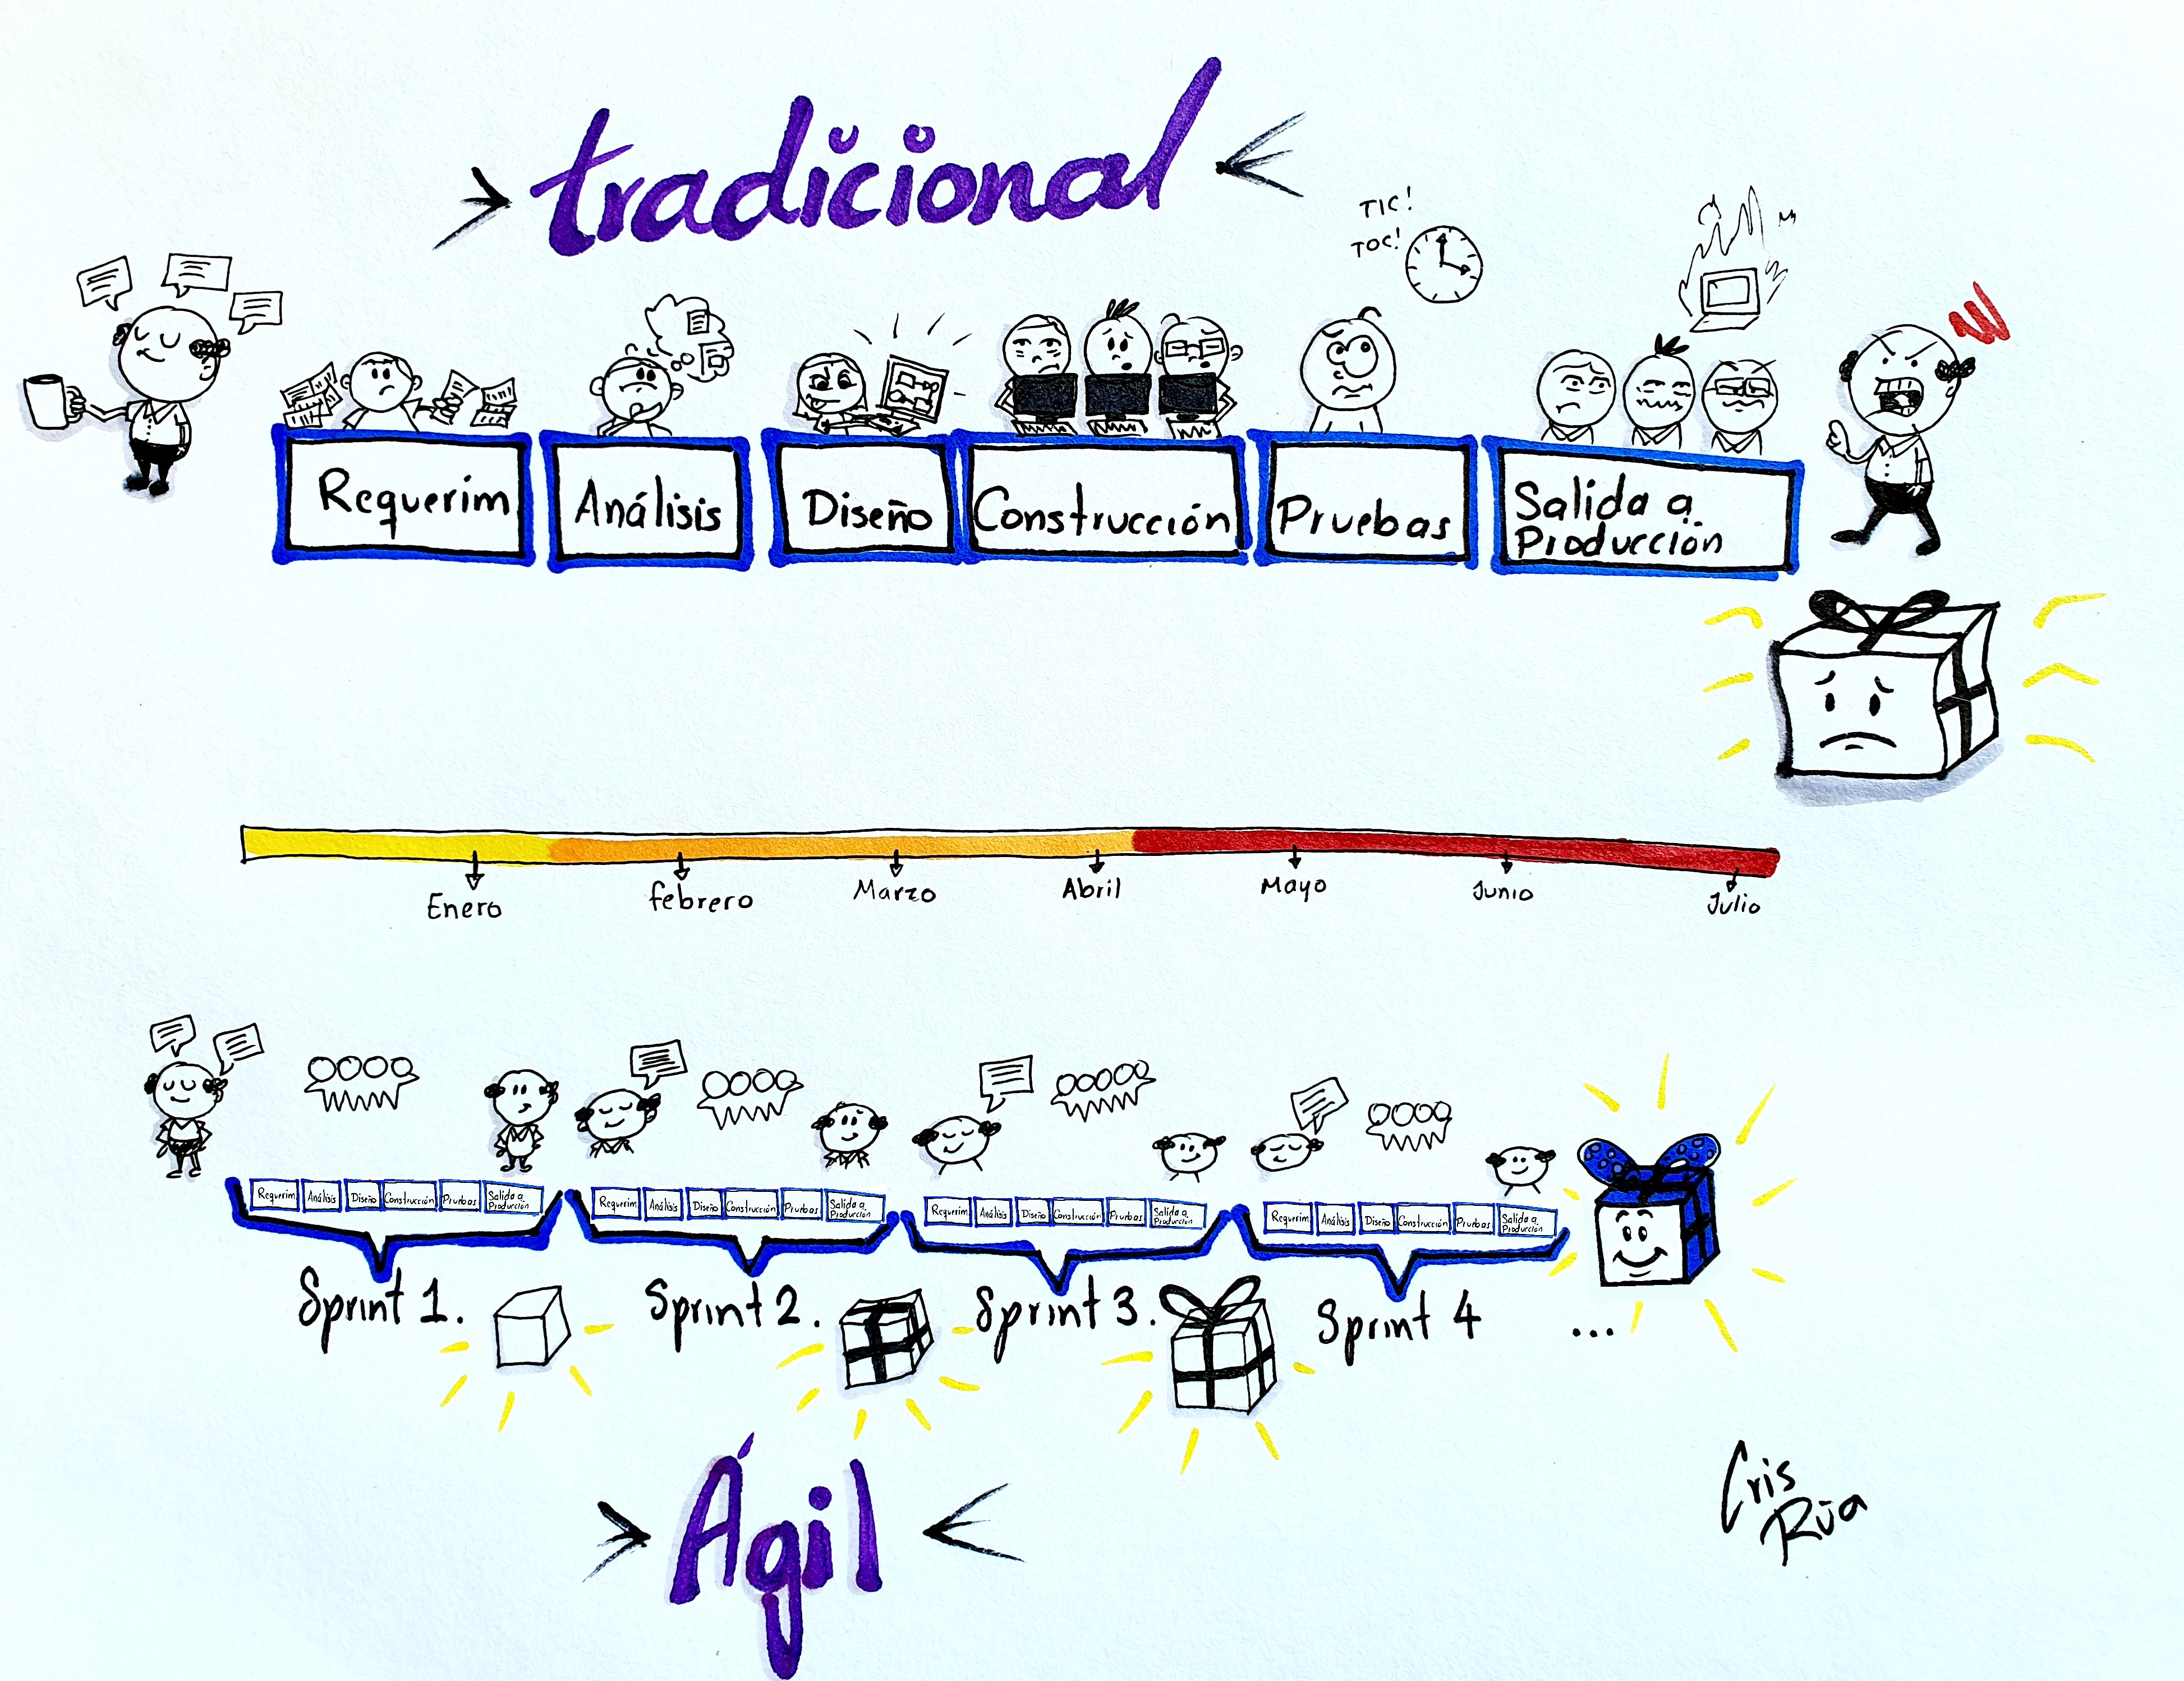 tradicional
TIC!
TOC!
Requerim
Análisis
Diseño
Construcción
Pruebas
Salida a
Producción
Enero
febrero
Marzo
Abril
Mayo
Junio
Julio
Requerim
Análisis
Diseño
Construcción
Pruebas
Salida a
Producción
Requerim
Análisis
Diseño
Construcción
Pruebas
Salida a
Producción
Requerim
Análisis
Diseño
Construcción
Pruebas
Salida a
Producción
Requerim
Análisis
Diseño
Construcción
Pruebas
Salida a
Producción
Sprint 1.
Sprint 2.
Sprint 3.
Sprint 4
...
Ágil
Cris
Rúa